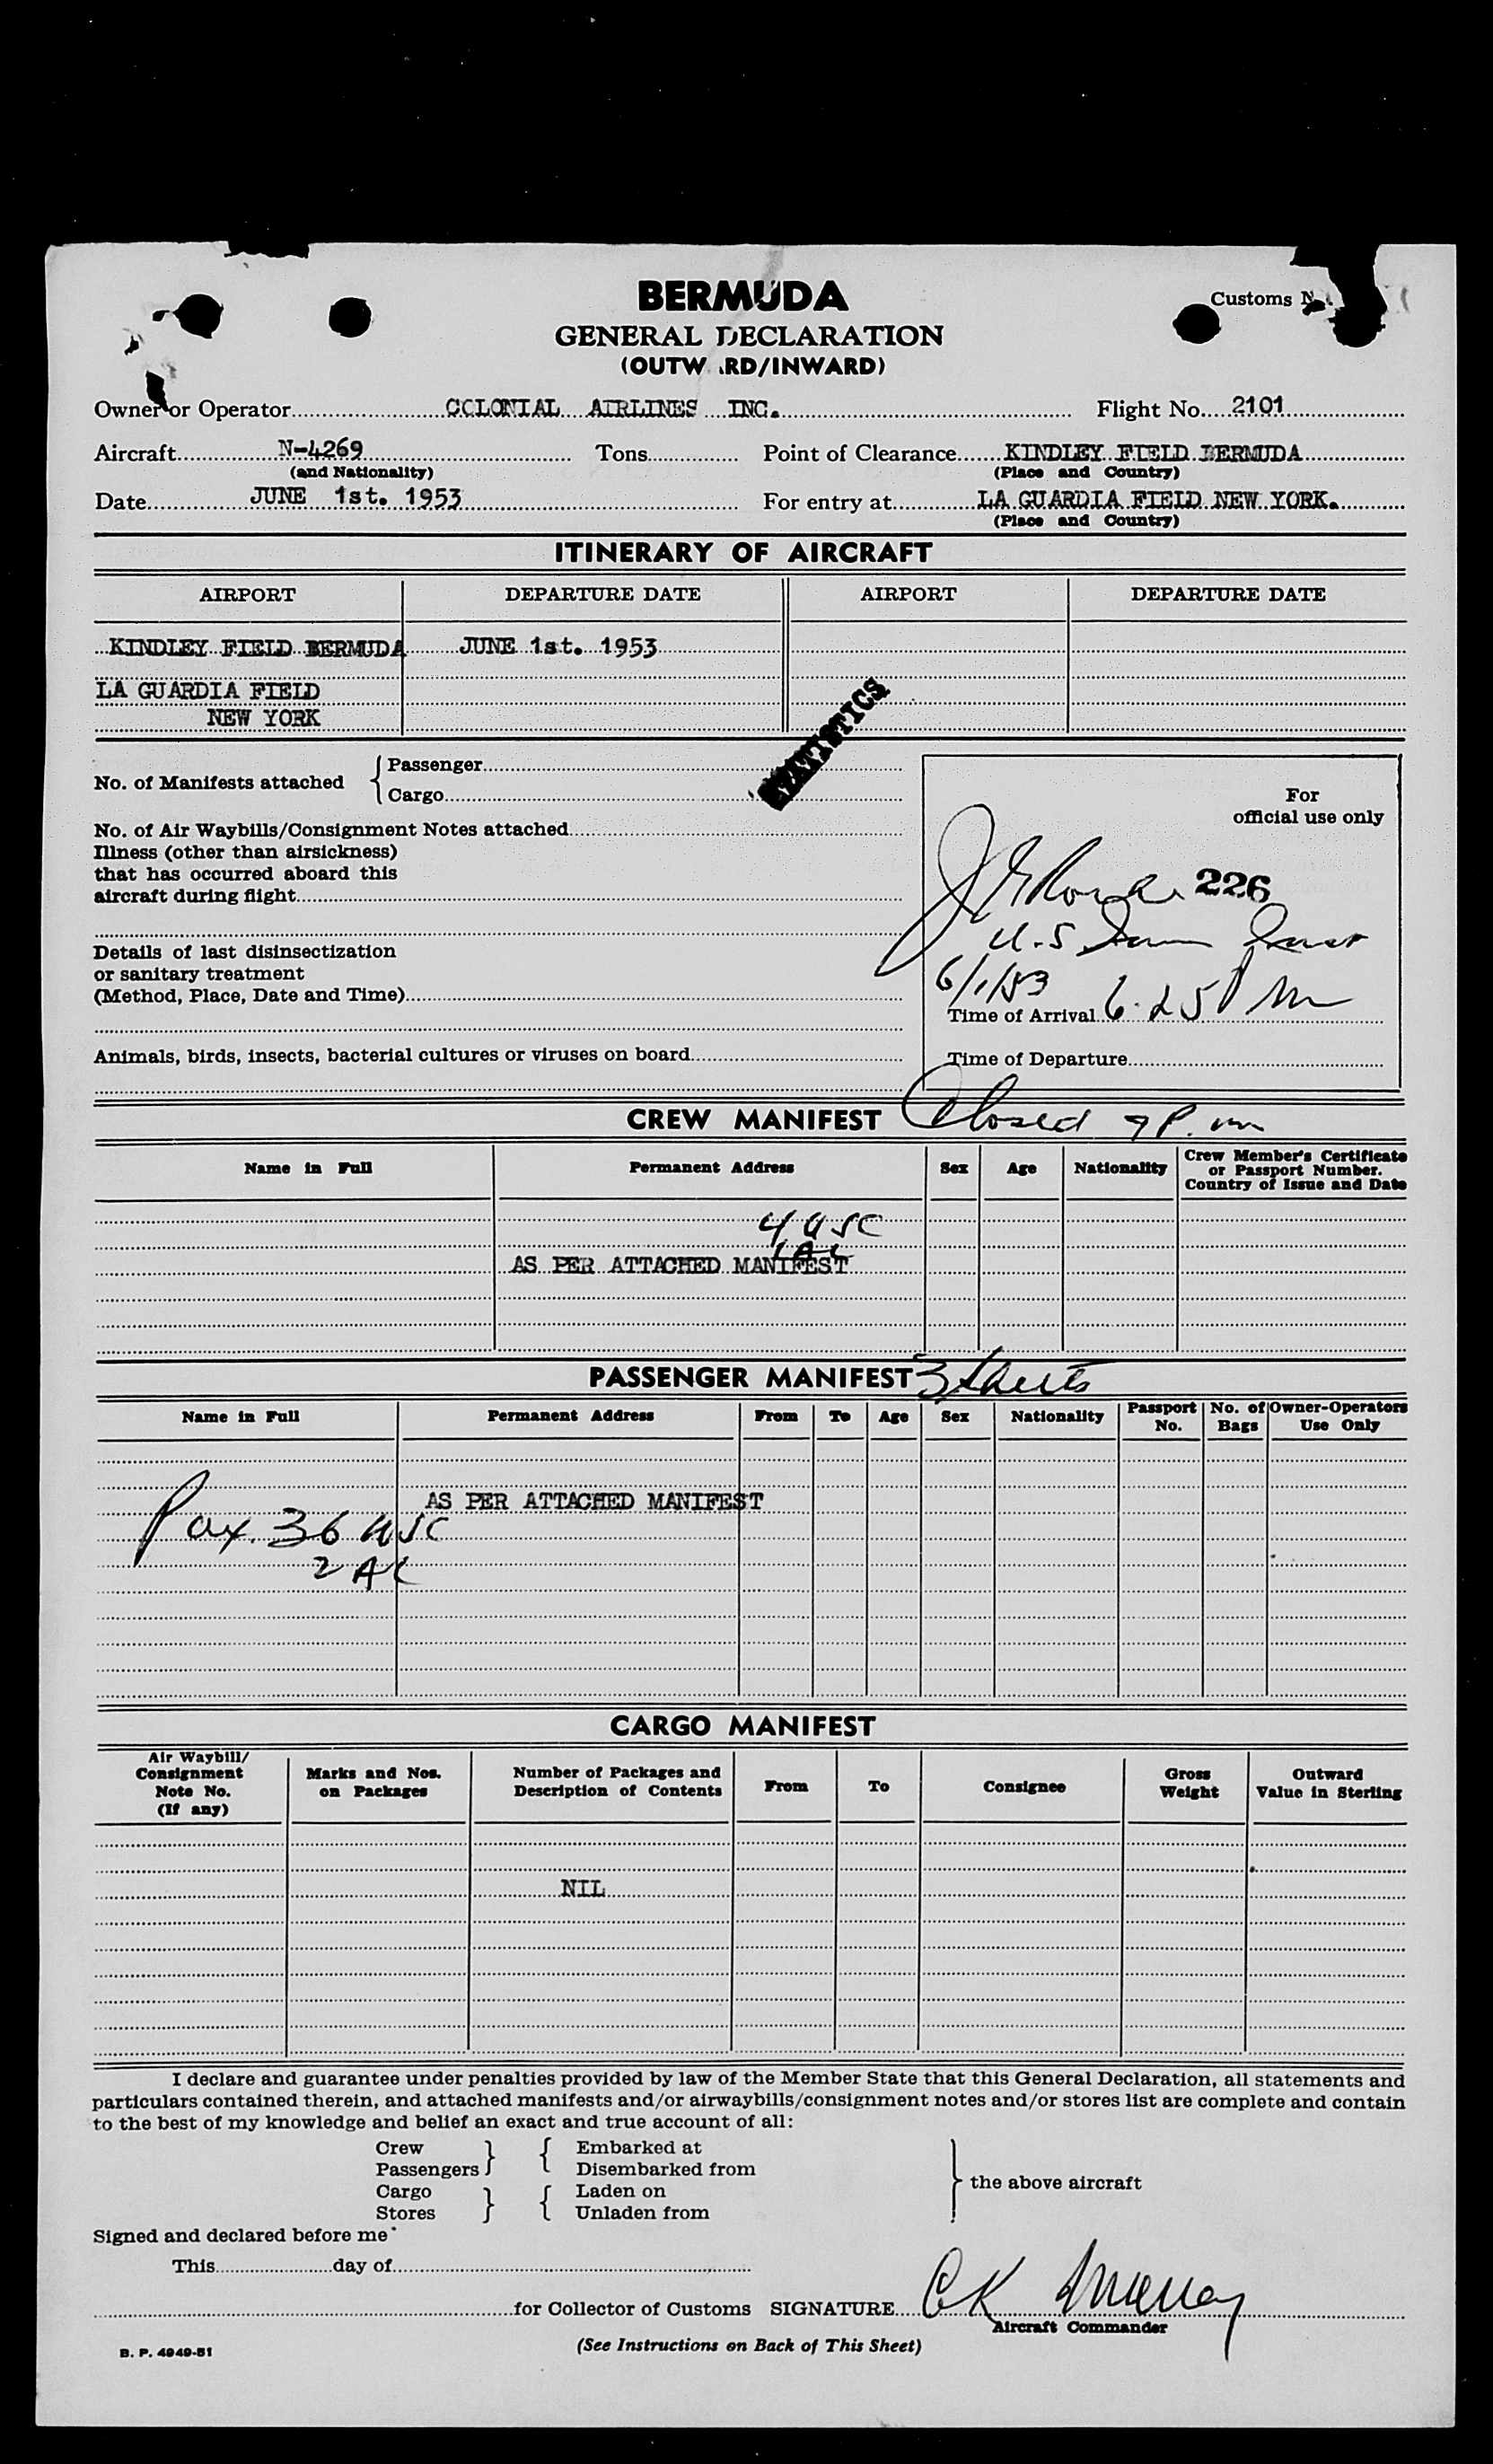 BERMUDA
Customs N
GENERAL DECLARATION
(OUTW RD/INWARD)
Owner or Operator COLONIAL AIRLINES INC. Flight No. 2101
Aircraft N-4269 Tons Point of Clearance KINDLEY FIELD BERMUDA
(and Nationality) (Place and Country)
Date JUNE 1st. 1953 For entry at LA GUARDIA FIELD NEW YORK.
(Place and Country)
ITINERARY OF AIRCRAFT
AIRPORT DEPARTURE DATE AIRPORT DEPARTURE DATE
KINDLEY FIELD BERMUDA JUNE 1st. 1953
LA GUARDIA FIELD
NEW YORK
STATISTICS
No. of Manifests attached { Passenger
Cargo
For
official use only
No. of Air Waybills/Consignment Notes attached
Illness (other than airsickness)
that has occurred aboard this
aircraft during flight
226
U.S
Details of last disinsectization
or sanitary treatment
(Method, Place, Date and Time)
6/1/53
Time of Arrival 6:25 PM
Animals, birds, insects, bacterial cultures or viruses on board
Time of Departure
CREW MANIFEST Closed 9 P.m
Name in Full Permanent Address Sex Age Nationality Crew Member's Certificate
or Passport Number.
Country of Issue and Date
4 USC
1 AC
AS PER ATTACHED MANIFEST
PASSENGER MANIFEST 3 sheets
Name in Full Permanent Address From To Age Sex Nationality Passport No. No. of Bags Owner-Operators Use Only
AS PER ATTACHED MANIFEST
Pax. 36 USC
2 AC
CARGO MANIFEST
Air Waybill/ Consignment Note No. (If any) Marks and Nos. on Packages Number of Packages and Description of Contents From To Consignee Gross Weight Outward Value in Sterling
NIL
I declare and guarantee under penalties provided by law of the Member State that this General Declaration, all statements and
particulars contained therein, and attached manifests and/or airwaybills/consignment notes and/or stores list are complete and contain
to the best of my knowledge and belief an exact and true account of all:
Crew } { Embarked at }
Passengers Disembarked from
the above aircraft
Cargo } { Laden on
Stores Unladen from
Signed and declared before me
This day of
for Collector of Customs SIGNATURE CK Murray
Aircraft Commander
(See Instructions on Back of This Sheet)
B. P. 4949-51